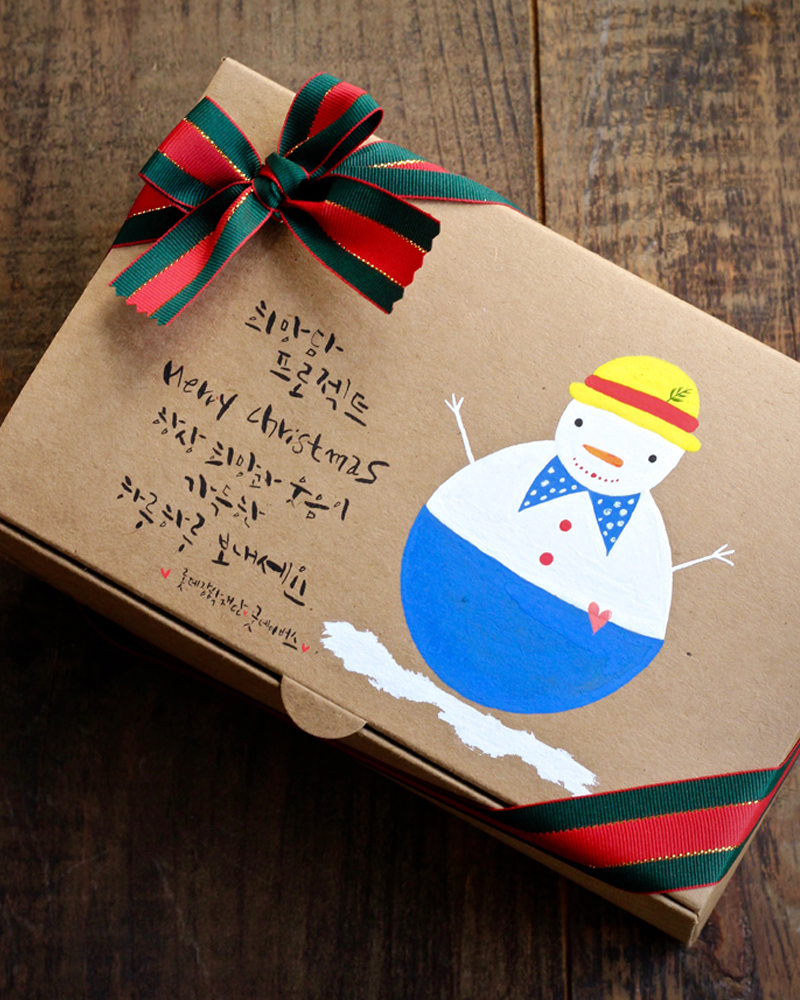 희망담다
프로젝트
Merry Christmas
항상 희망과 웃음이
가득한
하루하루 보내세요.
롯데장학재단 굿네이버스